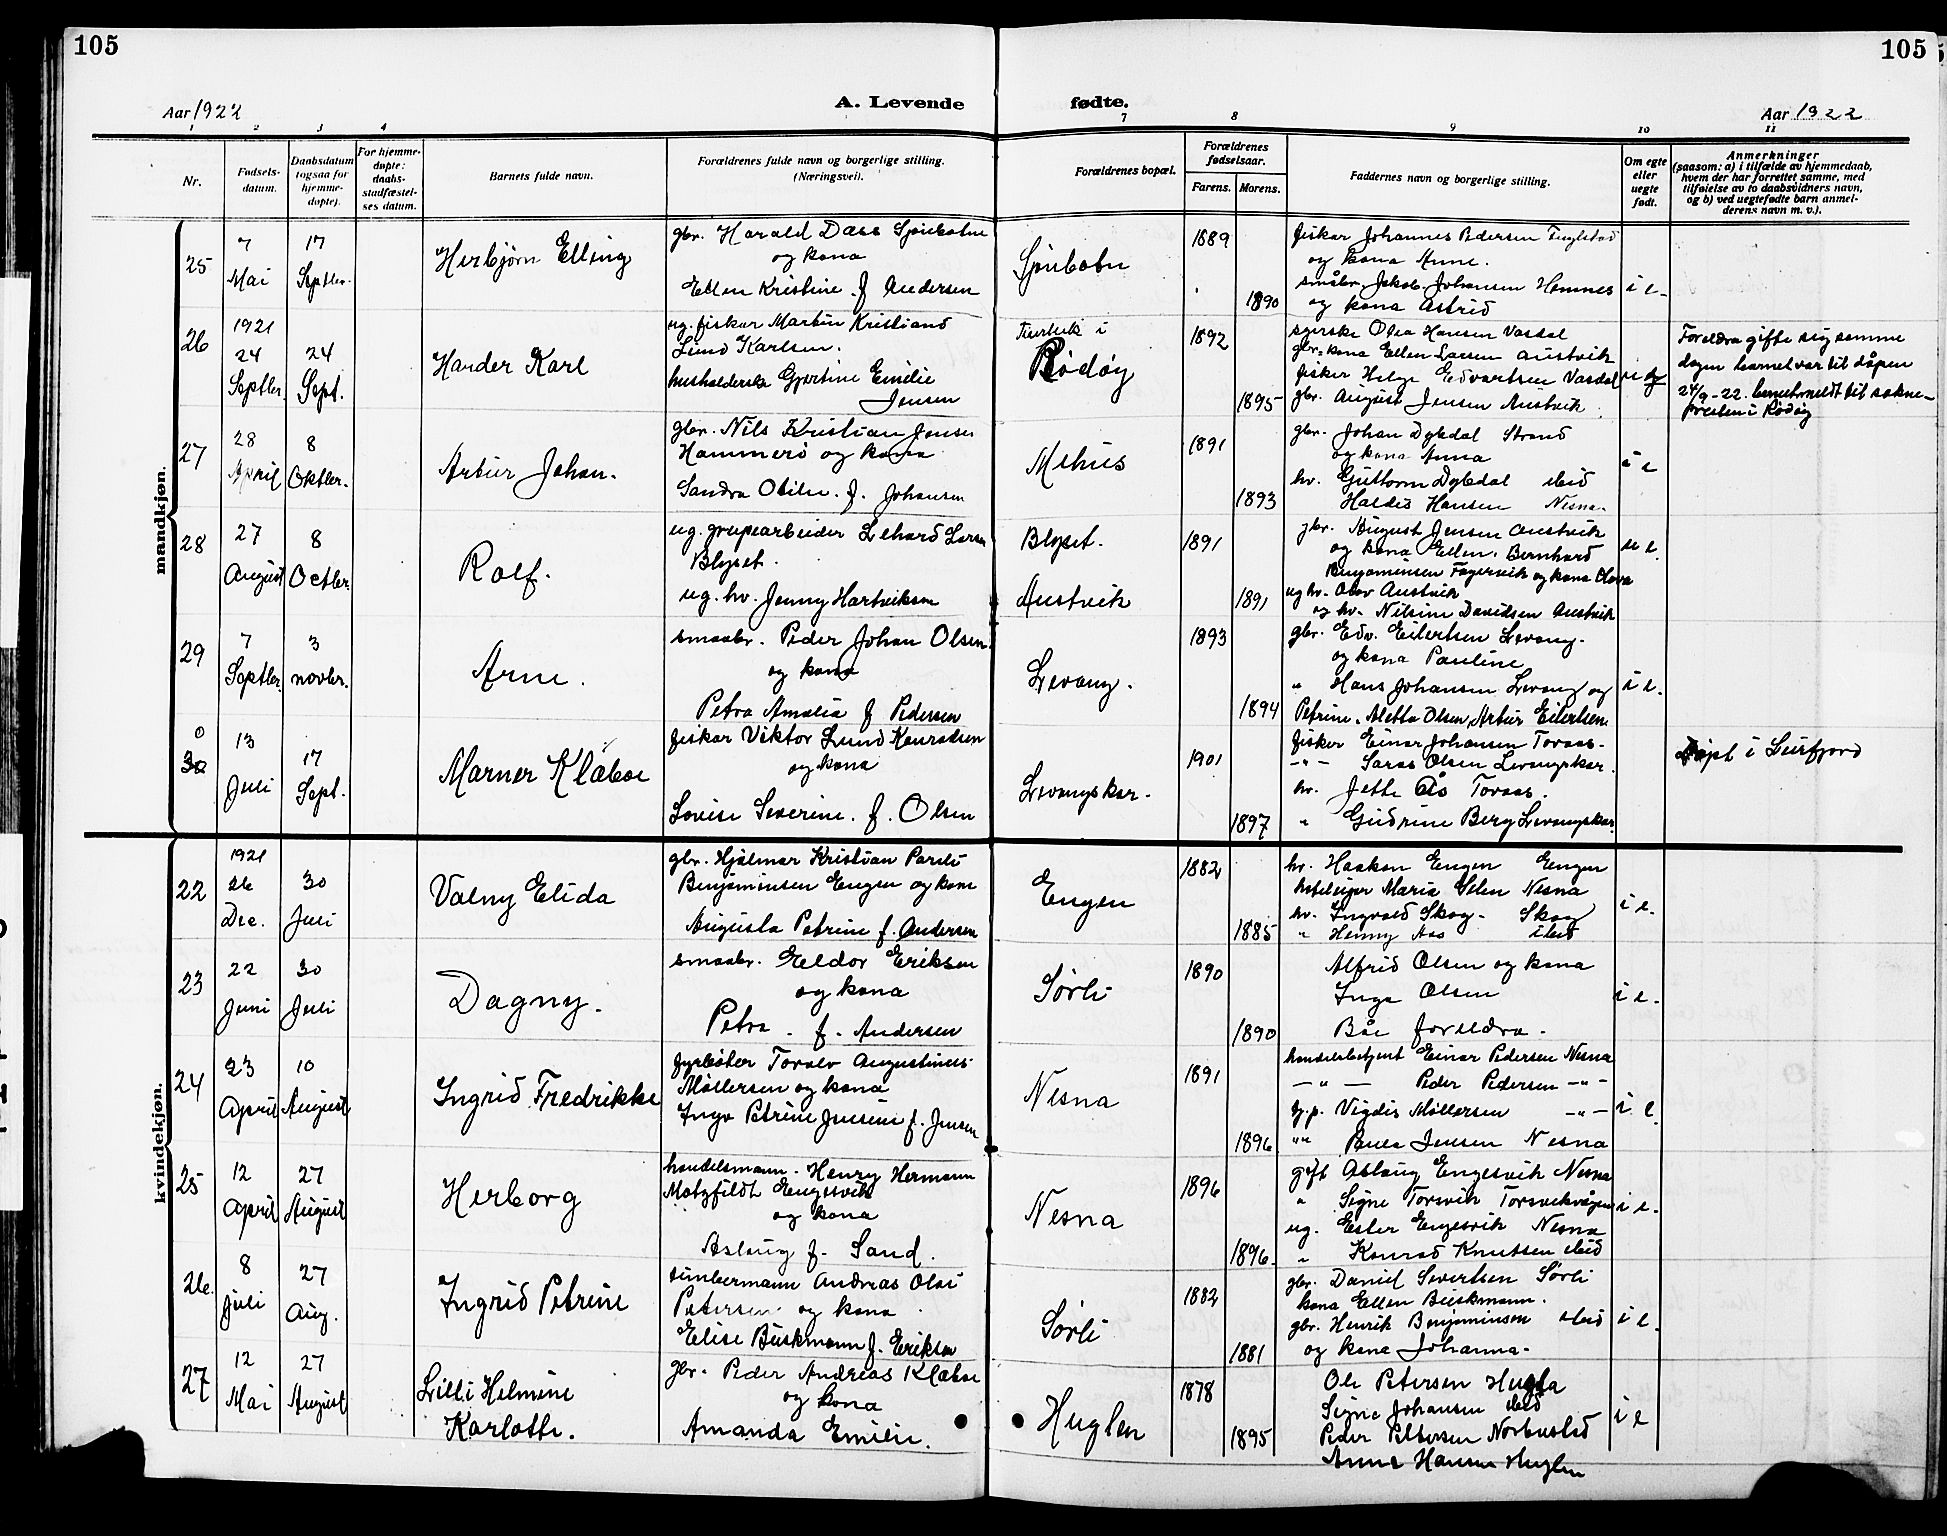 105
105
Aar 1922
A. Levende
fødte.
Aar 1922
1 2 3 4 7 8 9 10 11
Nr.
Fødsels-
datum.
Daabsdatum
(ogsaa for
hjemme-
døpte).
For hjemme-
døpte:
daabs-
stadfæstel-
ses datum.
Barnets fulde navn.
Forældrenes fulde navn og borgerlige stilling.
(Næringsvei).
Forældrenes bopæl.
Forældrenes
fødselsaar.
Farens. Morens.
Faddernes navn og borgerlige stilling.
Om egte
eller
uegte
født.
Anmerkninger
(saasom: a) i tilfælde av hjemmedaab,
hvem der har forrettet samme, med
tilføielse av to daabsvidners navn,
og b) ved uegtefødte barn anmel-
derens navn m. v.).
mandkjøn.
25
7
Mai
17
Septbr.
Herbjørn Elling
gbr. Harald Dass Sjonbotn
og kona
Ellen Kristine f Andersen
Sjonbotn
1889
1890
fisker Johannes Pedersen
og kona Anne.
småbr. Jakob Johansen Hemnes
og kona Astrid
i e.
26
1921
24
Septbr.
24
Sept.
Hander Karl
ug. fisker Martin Kristiand
Lund Karlsen.
husholderske Gjertine Emilie
Jensen
i
Rødøy
1892
1895
syerske Olea Hansen Vasdal
gbr. kona Ellen Larsen Austvik
fisker Helge Edvartsen Vasdal
gbr. August Jensen Austvik
Foreldra gifte sig samme
dagen barnet var til dåpen
24/9-22. barnet meldt til sokne-
presten i Rødøy
27
28
April
8
Oktbr.
Artur Johan.
gbr. Nils Kristian Jensen
Hammerø og kona
Sandra Otilie f. Johansen
Mehus
1891
1893
gbr. Johan Dybdal Strand
og kona Anna
hv. Guttorm Dybdal ibid
Haldis Hansen Nesna.
i e
28
27
August
8
Octbr.
Rolf.
ug. grupearbeider Lehard Larsen
Blyset.
ug. hv. Jenny Hartviksen
Blyset.
Austvik
1891
1891
gbr. August Jensen Austvik
og kona Ellen. Bernhard
Benjaminsen Fagervik og kona Olava
ug hv. Olav Austvik
og hv. Nilsine Davidsen Austvik
u e.
29
7
Septbr.
3
novbr.
Arne.
smaabr. Peder Johan Olsen
og kona
Petra Amalia f Pedersen
Levang.
1893
1894
gbr. Edv. Eilertsen Levang.
og kona Pauline
" Hans Johansen Levang og
Petrine. Aletta Olsen, Artur Eilertsen
i e.
30
13
Juli
17
Sept.
Marner Klæboe
fisker Viktor Lund Konradsen
og kona
Lovise Severine. f. Olsen
Levangskar.
1901
1897
fisker Einar Johansen Toraas.
-"- Saras Olsen Levangskar.
hv. Jette Ås Toraas.
" Gudrine Berg Levangskar.
Døpt i Leirfjord
kvindekjøn.
22
1921
26
Dec.
30
Juli
Valny Elida
gbr. Hjalmar Kristian Pareli
Benjaminsen Engen og kona
Augusta Petrine f. Andersen
Engen
1882
1885
hv. Haakon Engen Engen
Maria Nesna
hv. Ingvald Skog - Skog
" Henny Aas ibid
i e.
23
22
Juni
30
Juli
Dagny.
smaabr. Eeldor Eriksen
og kona
Petra. f. Andersen
Sørli
1890
1890
Alfrid Olsen og kona
Inga Olsen
Båe foreldra.
i e.
24
23
April
10
August
Ingrid Fredrikke
fyrbøter Toralv Augustinus
Møllersen og kona
Inga Petrine Jensine f. Jensen
Nesna
1891
1896
handelsbetjent Einar Pedersen Nesna
-"- Peder Pedersen -"-
Vigdis Møllersen -"-
"" Paula Jensen Nesna
i e
25
12
April
27
August
Herborg
handelsmann. Henry Hermann
Motzfildt Engesvik
og kona
Aslaug f. Sand.
Nesna
1896
1896.
gift Aslaug Engesvik Nesna
" Signe Torsvik Torsvikvågen
ug. Ester Engesvik Nesna
" Konrad Knutsen ibid
i e.
26.
8
Juli
27
Aug.
Ingrid Petrine
timbermann Andreas Olai
Petersen og kona
Elise Buskmann f. Eriksen
Sørli
1882
1881
gbr. Daniel Severtsen Sørli
kona Ellen Buskmann.
gbr. Henrik Benjaminsen ibid
og kona Johanna.
i e.
27
12
Mai
27
August
Lilli Helmine
Karlotte.
gbr. Peder Andreas Klæboe
og kona
Amanda Emilie.
Huglen
1878
1895
Ole Petersen Hugla
Signe Johansen ibid
Peder Pettersen
Anna Hansen Huglen
i e